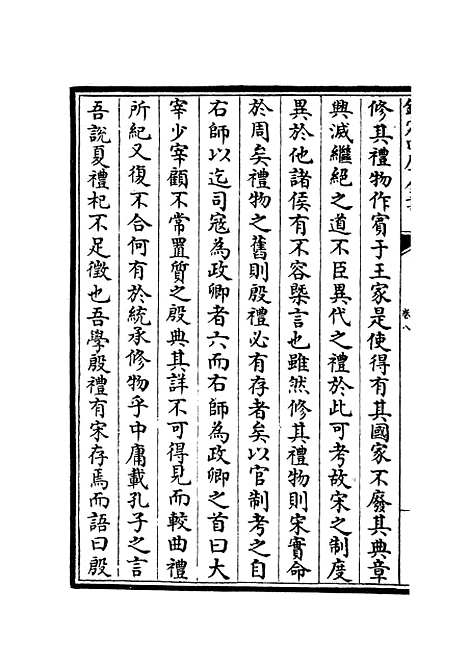 修其禮物作賔于王家是使得有其國家不廢其典章
興滅繼絶之道不臣異代之禮於此可考故宋之制度
異於他諸侯有不容槩言也雖然修其禮物則宋實命
於周矣禮物之舊則殷禮必有存者矣以官制考之自
右師以迄司寇為政卿者六而右師為政卿之首曰大
宰少宰顧不常置質之殷典其詳不可得見而較曲禮
所紀又復不合何有於統承修物乎中庸載孔子之言
吾說夏禮杞不足徵也吾學殷禮有宋存焉而語曰殷
卷八